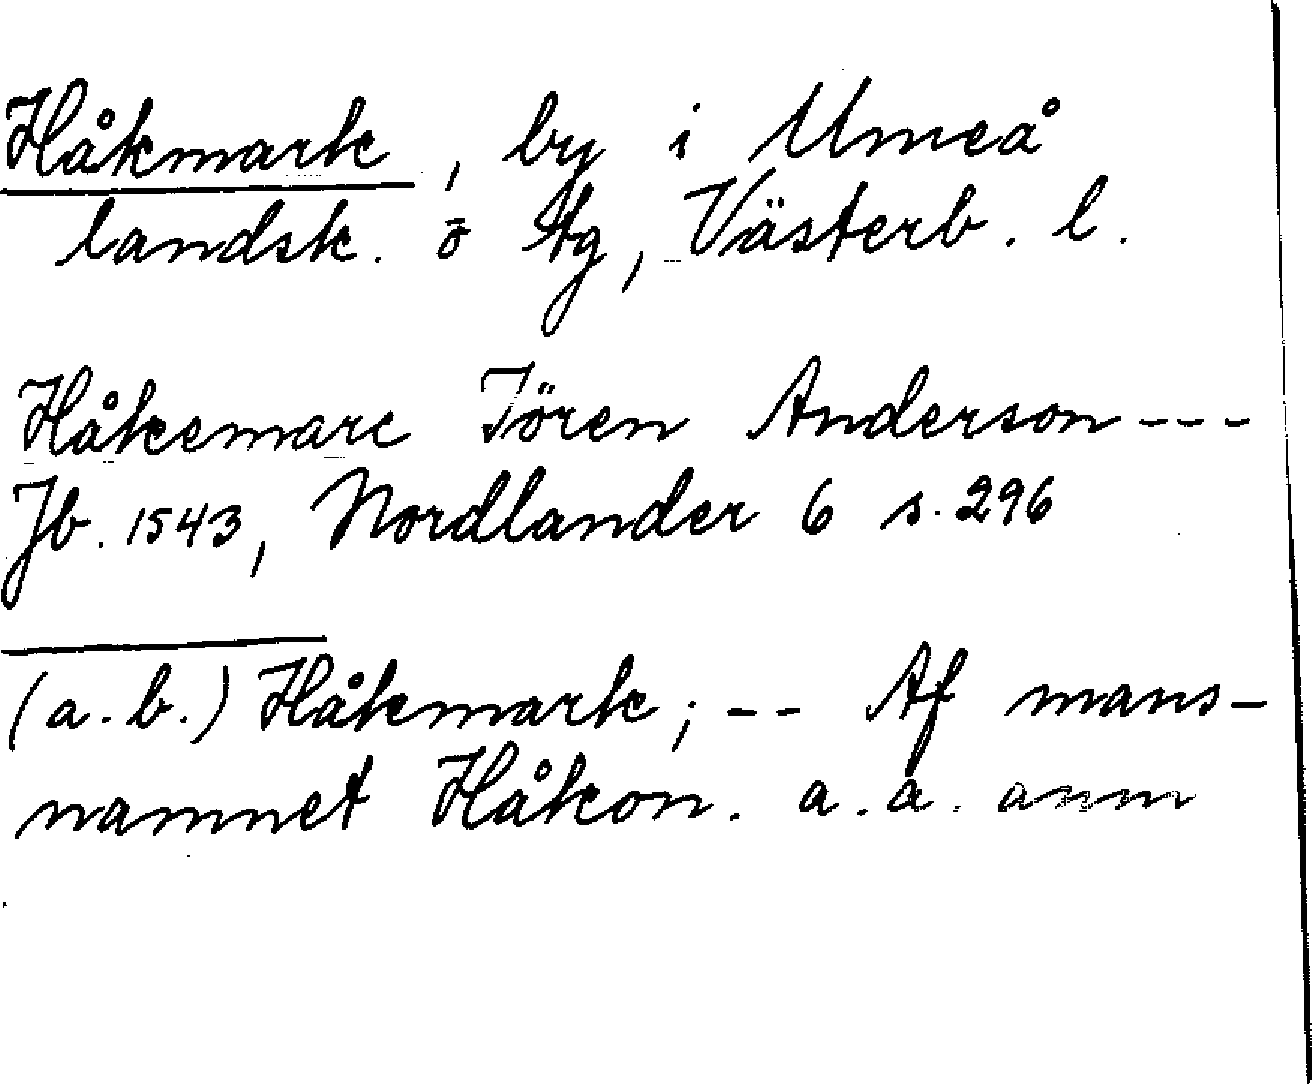 Håkmark, by i Umeå
landsk. o tg, Västerb. l.
Håkemarc Jören Anderson ---
Jb. 1543, Nordlander 6 s. 296
(a. b.) Håkmark; -- Af mans-
namnet Håkon. a. a. anm